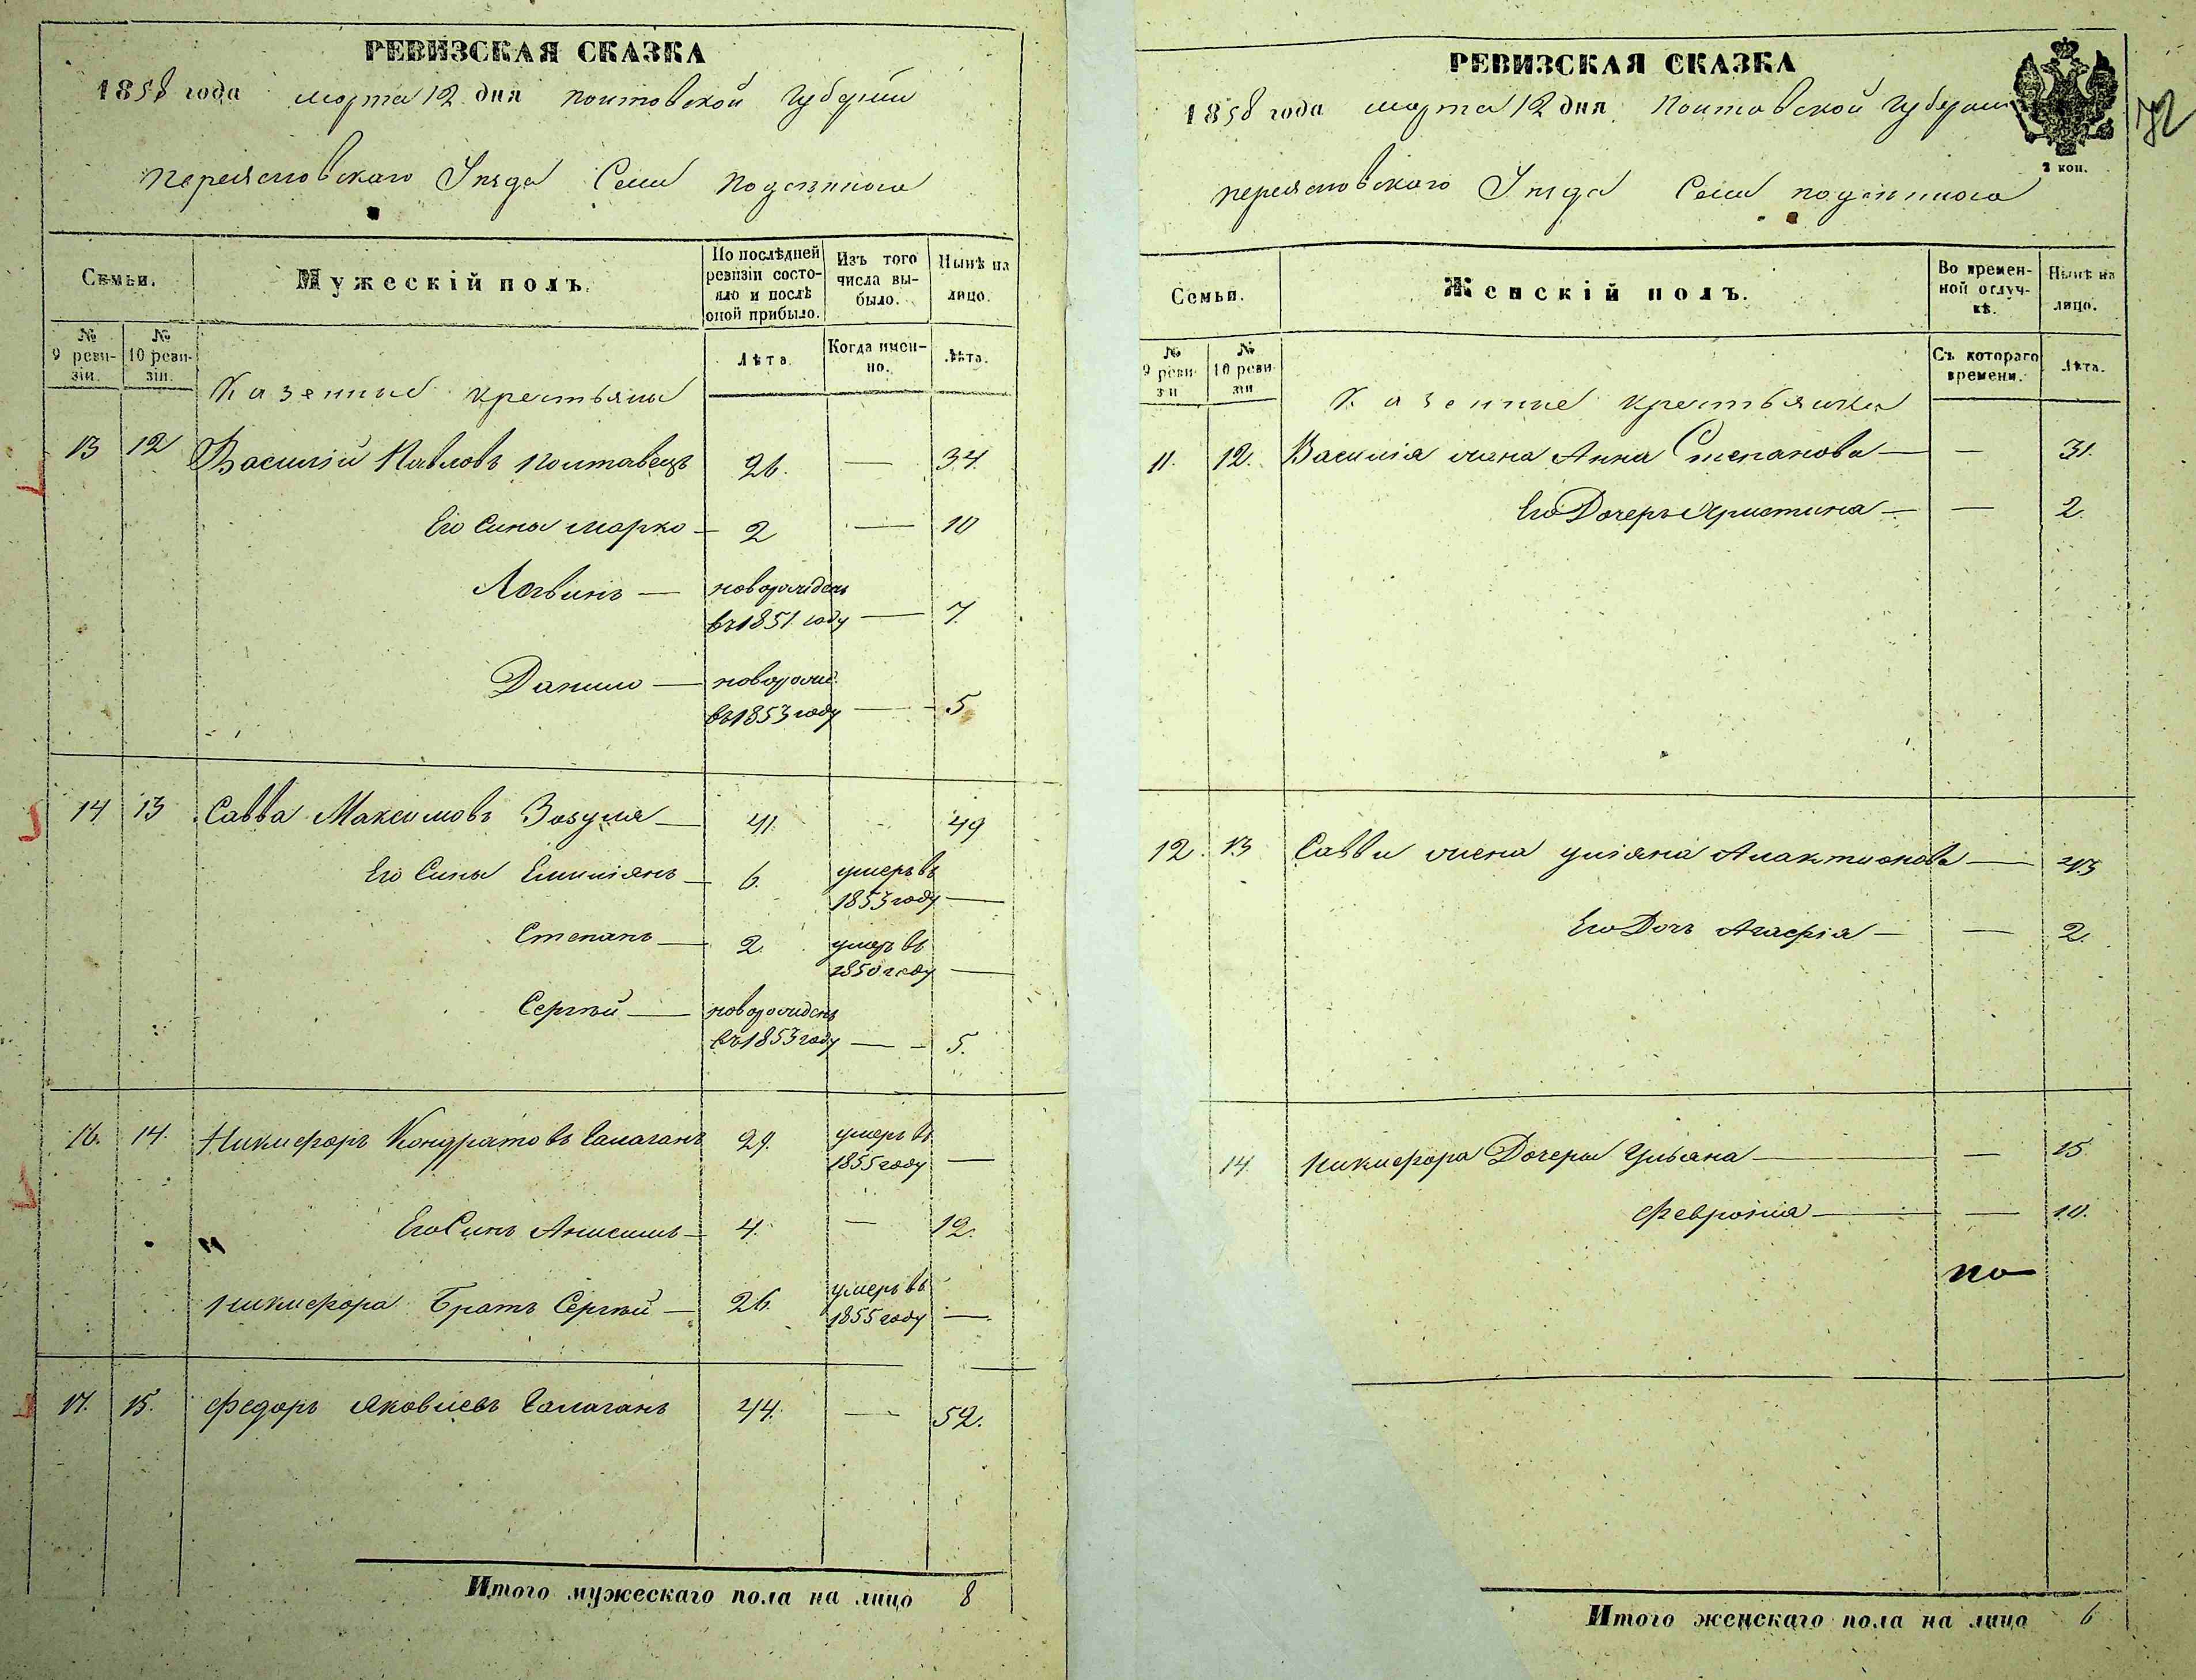 РЕВИЗСКАЯ СКАЗКА
1858 года марта 12 дня Полтавской Губернии
Переясловскаго Уезда Села Подсеннаго
Семьи.
Мужескій полъ.
По послѣдней ревизіи состояло и послѣ оной прибыло.
Изъ того числа выбыло.
Нынѣ на лицо.
№ 9 ревизіи.
№ 10 ревизіи.
Лѣта.
Когда именно.
Лѣта.
Казенные крестьяны
13 12 Василій Павловъ Полтавецъ 26. — 34.
Его Сины Марко — 2 — 10
Логвинъ — новорожденъ
въ 1851 году — 7.
Данило — новорож.
въ 1853 году — 5
14 13 Савва Максимовъ Зозуля — 41. 49
Его Сины Емиліянъ — 6. умеръ въ
1853 году —
Степанъ — 2. умеръ въ
1850 году —
Сергѣй — новорожденъ
въ 1853 году — 5.
16. 14. Никифоръ Кондратовъ Галаганъ 29. умеръ въ
1855 году —
Его Синъ Анисимъ — 4. — 12.
Никифора Братъ Сергѣй — 26. умеръ въ
1855 году —
17. 15. Федоръ Яковлевъ Галаганъ 44. — 52.
Итого мужескаго пола на лицо 8
РЕВИЗСКАЯ СКАЗКА
1858 года марта 12 дня Полтавской Губернии
2 коп.
Переясловскаго Уезда Села Подсеннаго
Семьи.
Женскій полъ.
Во временной отлучкѣ.
Нынѣ на лицо.
№ 9 ревизіи
№ 10 ревизіи
Съ котораго времени.
Лѣта.
Казенные крестьянки
11. 12. Василія жена Анна Степанова — — 31.
Его Дочеръ Христина — — 2.
12. 13 Саввы жена Уліяна Алактионова — 43
Его Дочъ Агафія — — 2.
14 Никифора Дочеры Ульяна — — 15
Февронія — — 10.
по
Итого женскаго пола на лицо 6